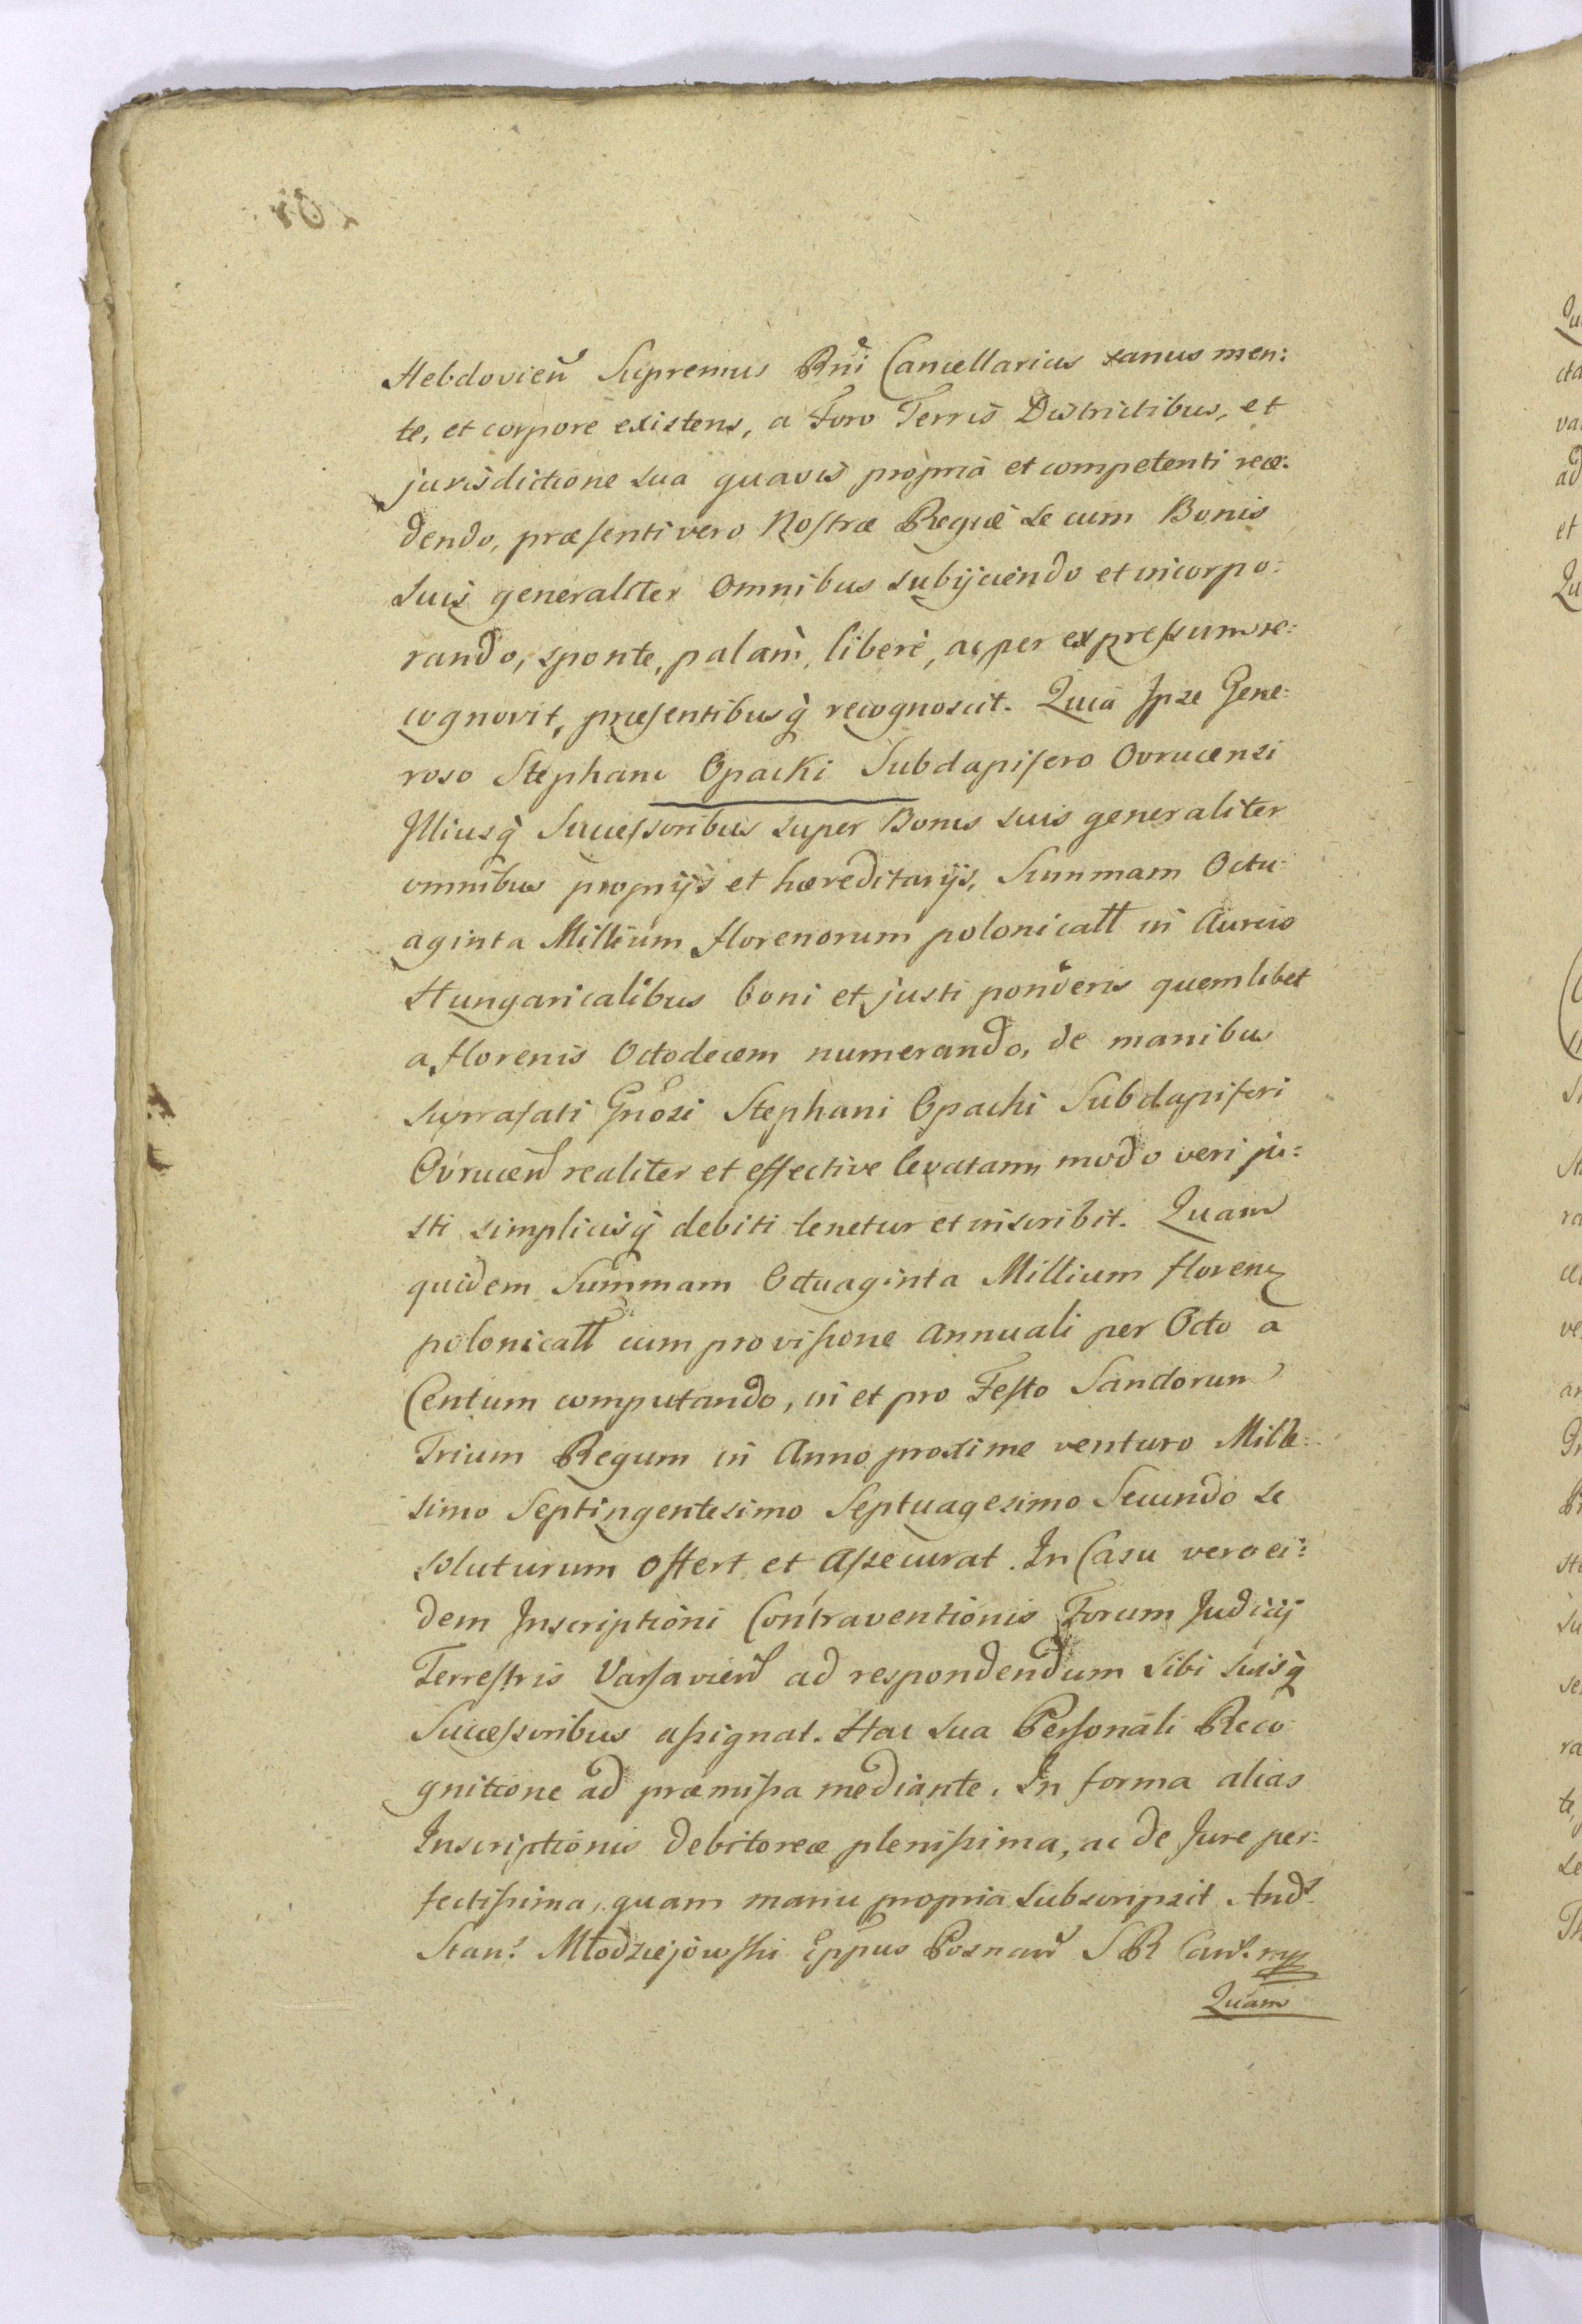 Hebdovień Supremus Rni Cancellarius sanus men:
te, et corpore existens, a Foro Terris Districtibus, et
jurisdictione sua quavis propria et competenti rece:
dendo, præsenti vero Nostræ Regiæ se cum Bonis
suis generaliter Omnibus subijciendo et incorpo:
rando, sponte, palam, liberè, ac per expressum re:
cognovit, præsentibusq̀ recognoscit. Quia Ipse Gene:
roso Stephano Opacki Subdapifero Ovrucensi
Illiusq̀ Successoribus super Bonis suis generaliter
omnibus proprijs et hæreditarijs, Summam Octu:
aginta Millium florenorum polonicall in Aureis
Hungaricalibus boni et justi ponderis quemlibet
a florenis Octodecem numerando, de manibus
suprafati Gnosi Stephani Opacki Subdapiferi
Ovruceń realiter et effective levatam modo veri ju:
sti simplicisq̀ debiti tenetur et inscribit. Quam
quidem Summam Octuaginta Millium floren
polonicall cum provisione Annuali per Octo à
Centum computando, in et pro Festo Sanctorum
Trium Regum in Anno proxime venturo Mille:
simo Septingentesimo Septuagesimo Secundo se
soluturum offert et Assecurat. In Casu vero ei:
dem Inscriptioni Contraventionis Forum Judicij
Terrestris Varsavień ad respondendum sibi suisq̀
Successoribus assignat. Hac sua Personali Reco
gnitione ad præmissa mediante. In forma alias
Inscriptionis Debitoreæ plenissima, ac de Jure per:
fectissima, quam manu propria subscripsit. Andr
Stan: Młodziejowski Eppus Posnań S R Canc. mp
Quam